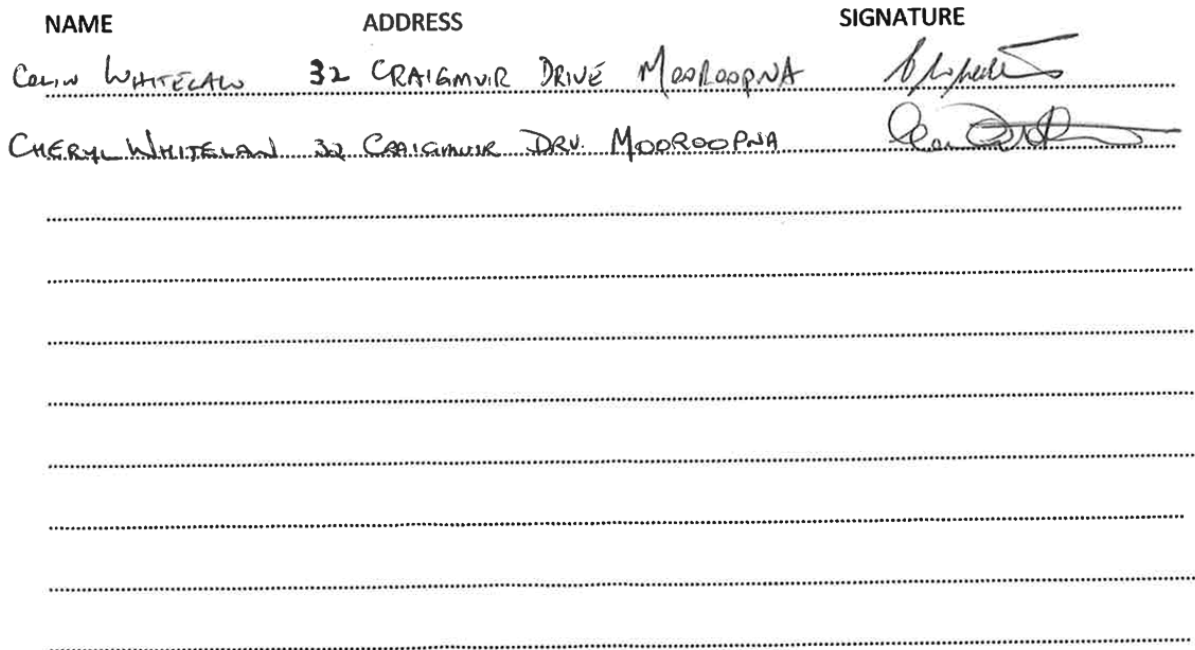 NAME ADDRESS SIGNATURE
COLIN WHITELAW 32 CRAIGMUIR DRIVE MOOROOPNA
CHERYL WHITELAW 32 CRAIGMUIR DRV. MOOROOPNA